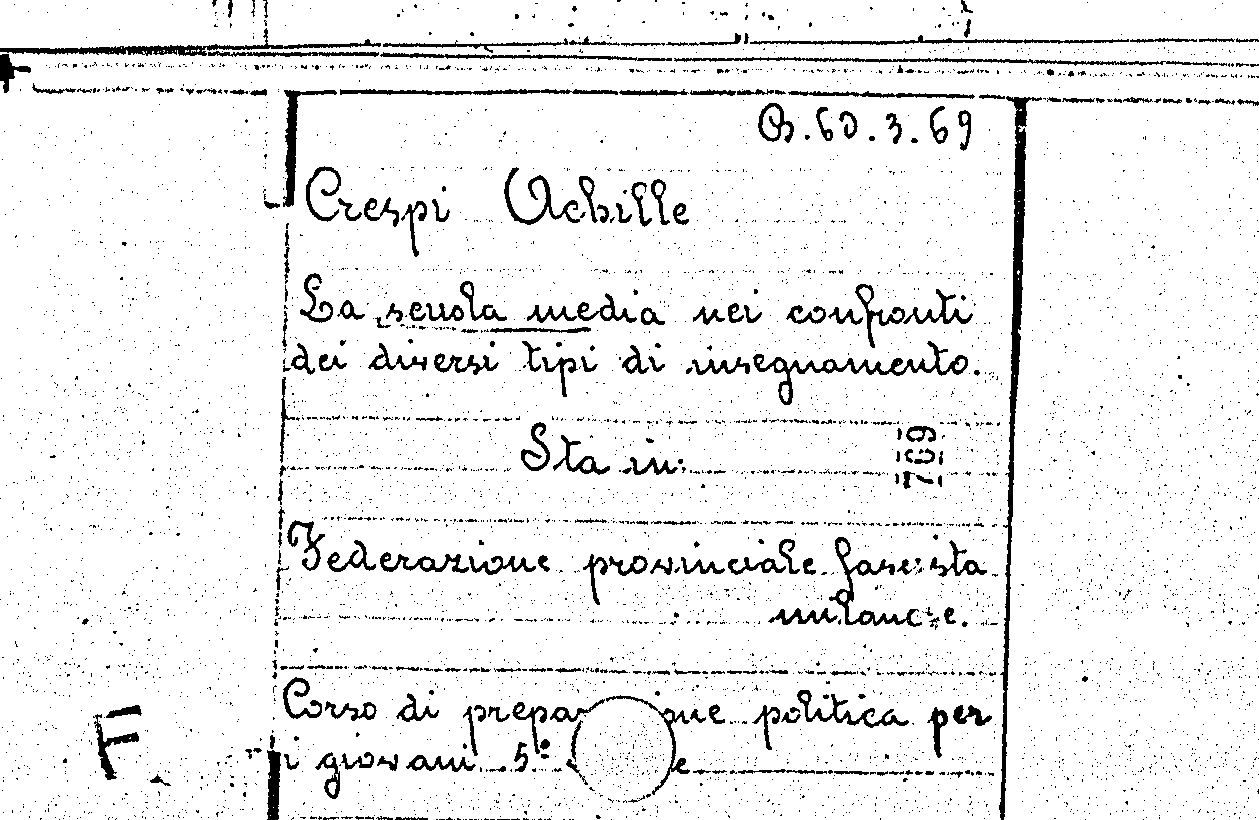 B.60.3.69
Crespi Achille
La scuola media nei confronti
dei diversi tipi di insegnamento.
Sta in:
769
Federazione provinciale fascista
milanese.
Corso di politica per
i giovani 5º
F.